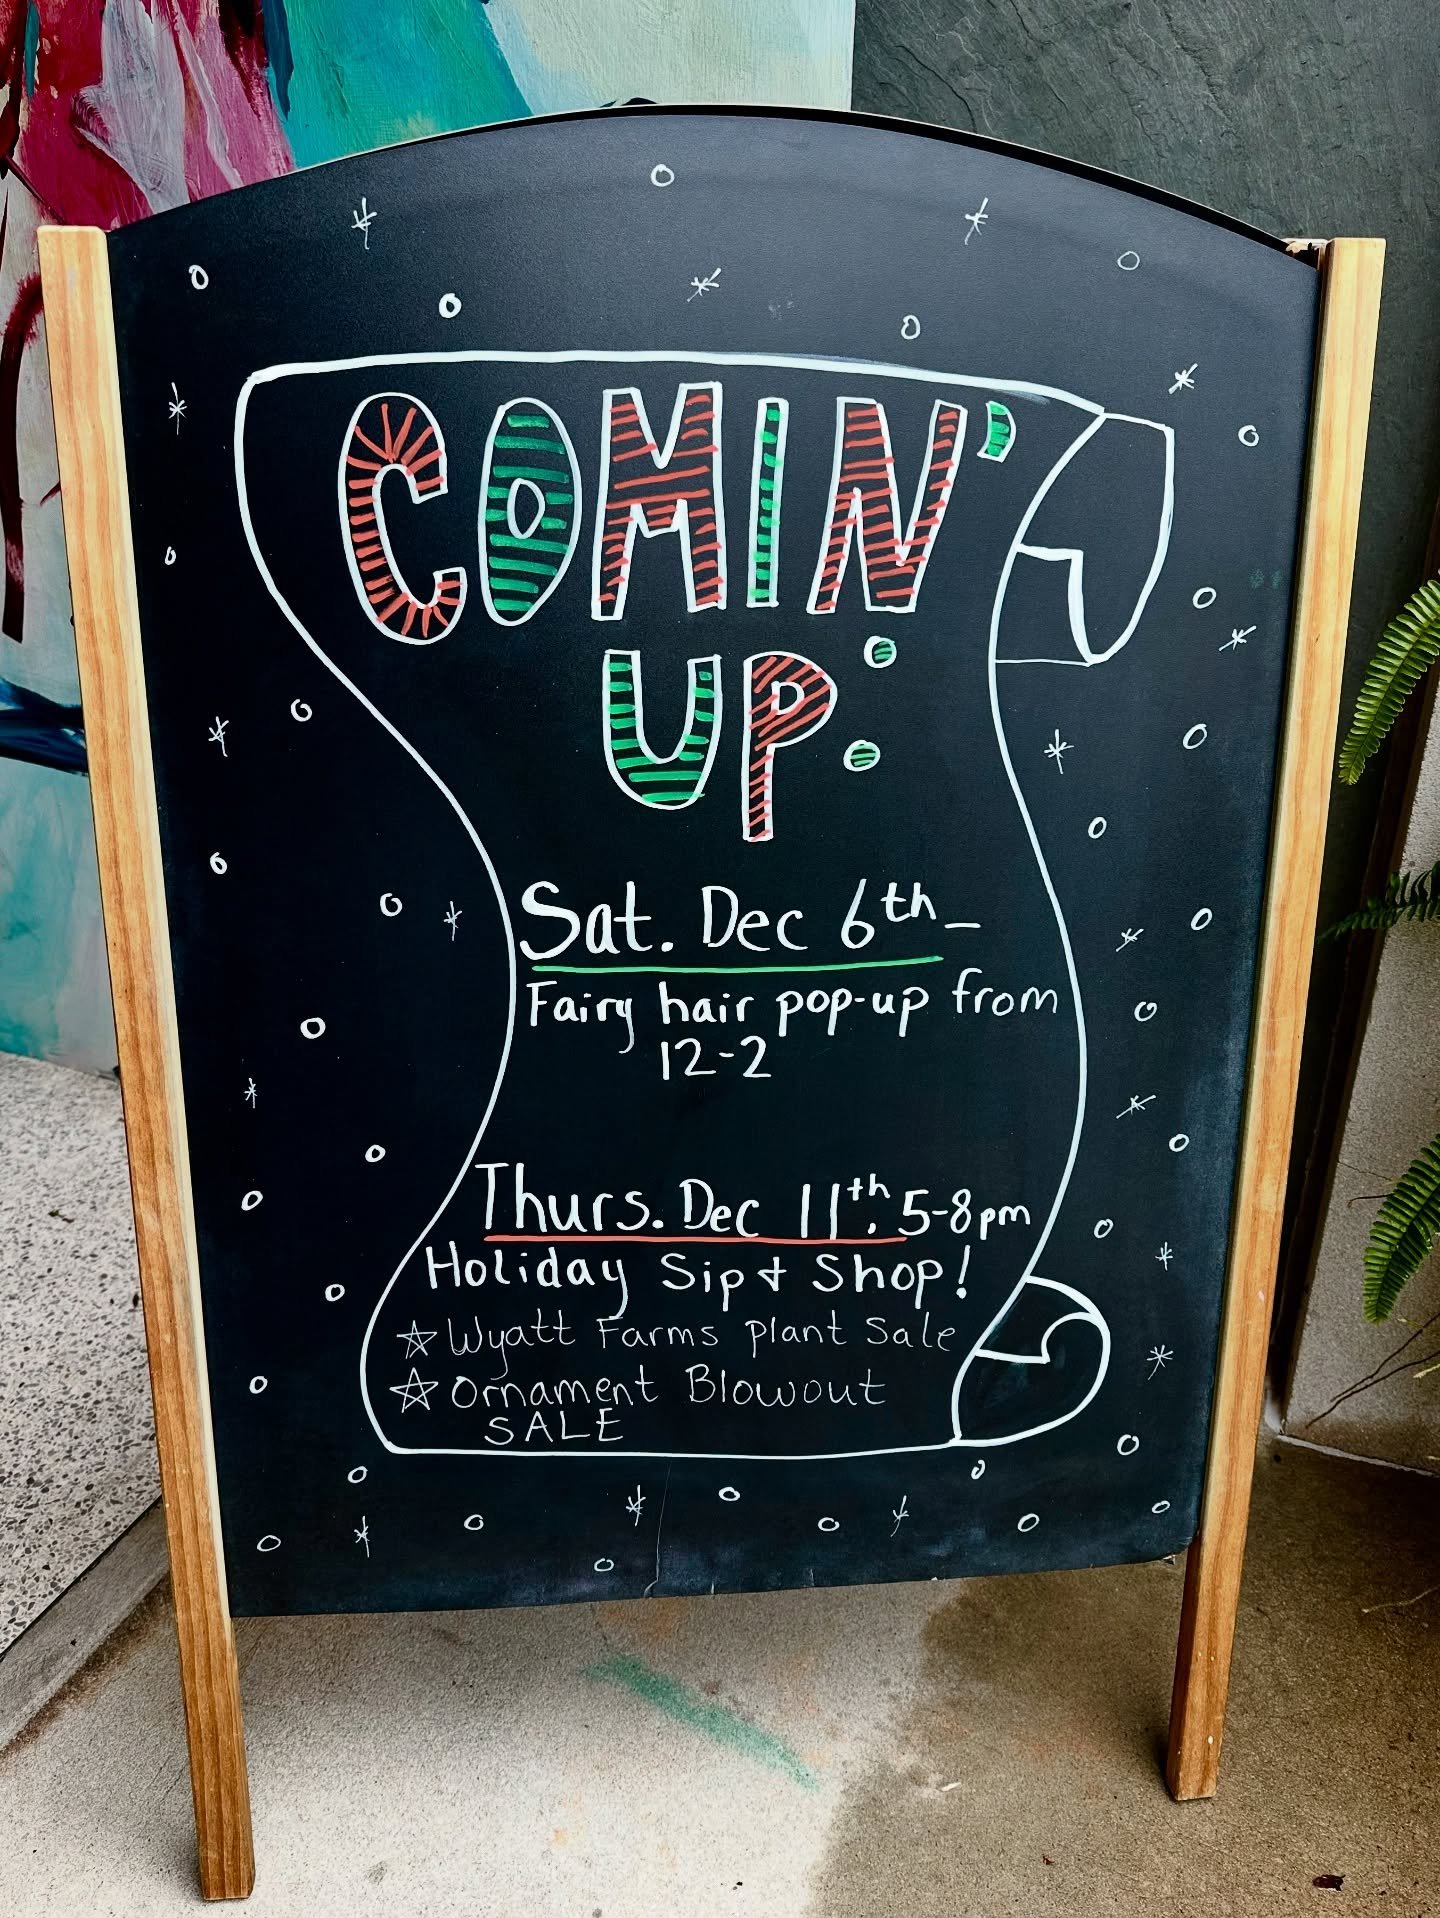 COMIN'
UP:
Sat. Dec 6th-
Fairy hair pop-up from
12-2
Thurs. Dec 11th. 5-8pm
Holiday Sip & Shop!
☆ Wyatt Farms plant Sale
☆ Ornament Blowout
SALE